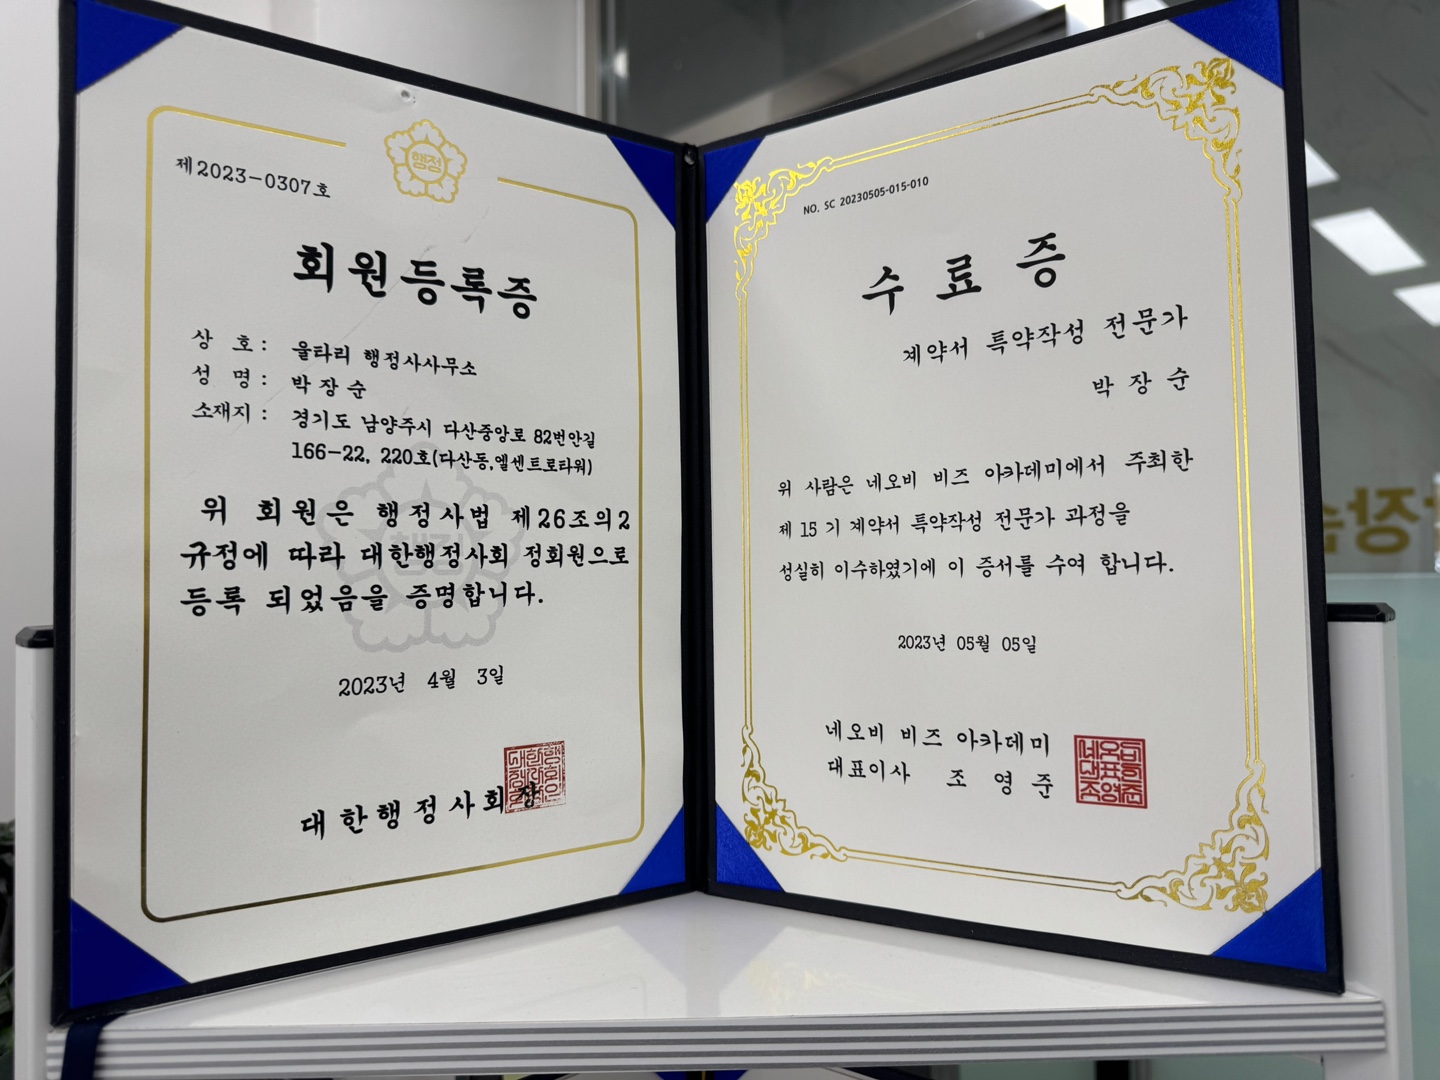 행정
제2023-0307호
회원등록증
상 호 : 울타리 행정사사무소
성 명 : 박 장 순
소재지 : 경기도 남양주시 다산중앙로 82번안길
166-22, 220호(다산동,엘센트로타워)
위 회원은 행정사법 제26조의2
규정에 따라 대한행정사회 정회원으로
등록 되었음을 증명합니다.
2023년 4월 3일
대한행정사회장
NO. SC 20230505-015-010
수 료 증
계약서 특약작성 전문가
박 장 순
위 사람은 네오비 비즈 아카데미에서 주최한
제 15 기 계약서 특약작성 전문가 과정을
성실히 이수하였기에 이 증서를 수여 합니다.
2023년 05월 05일
네오비 비즈 아카데미
대표이사 조 영 준